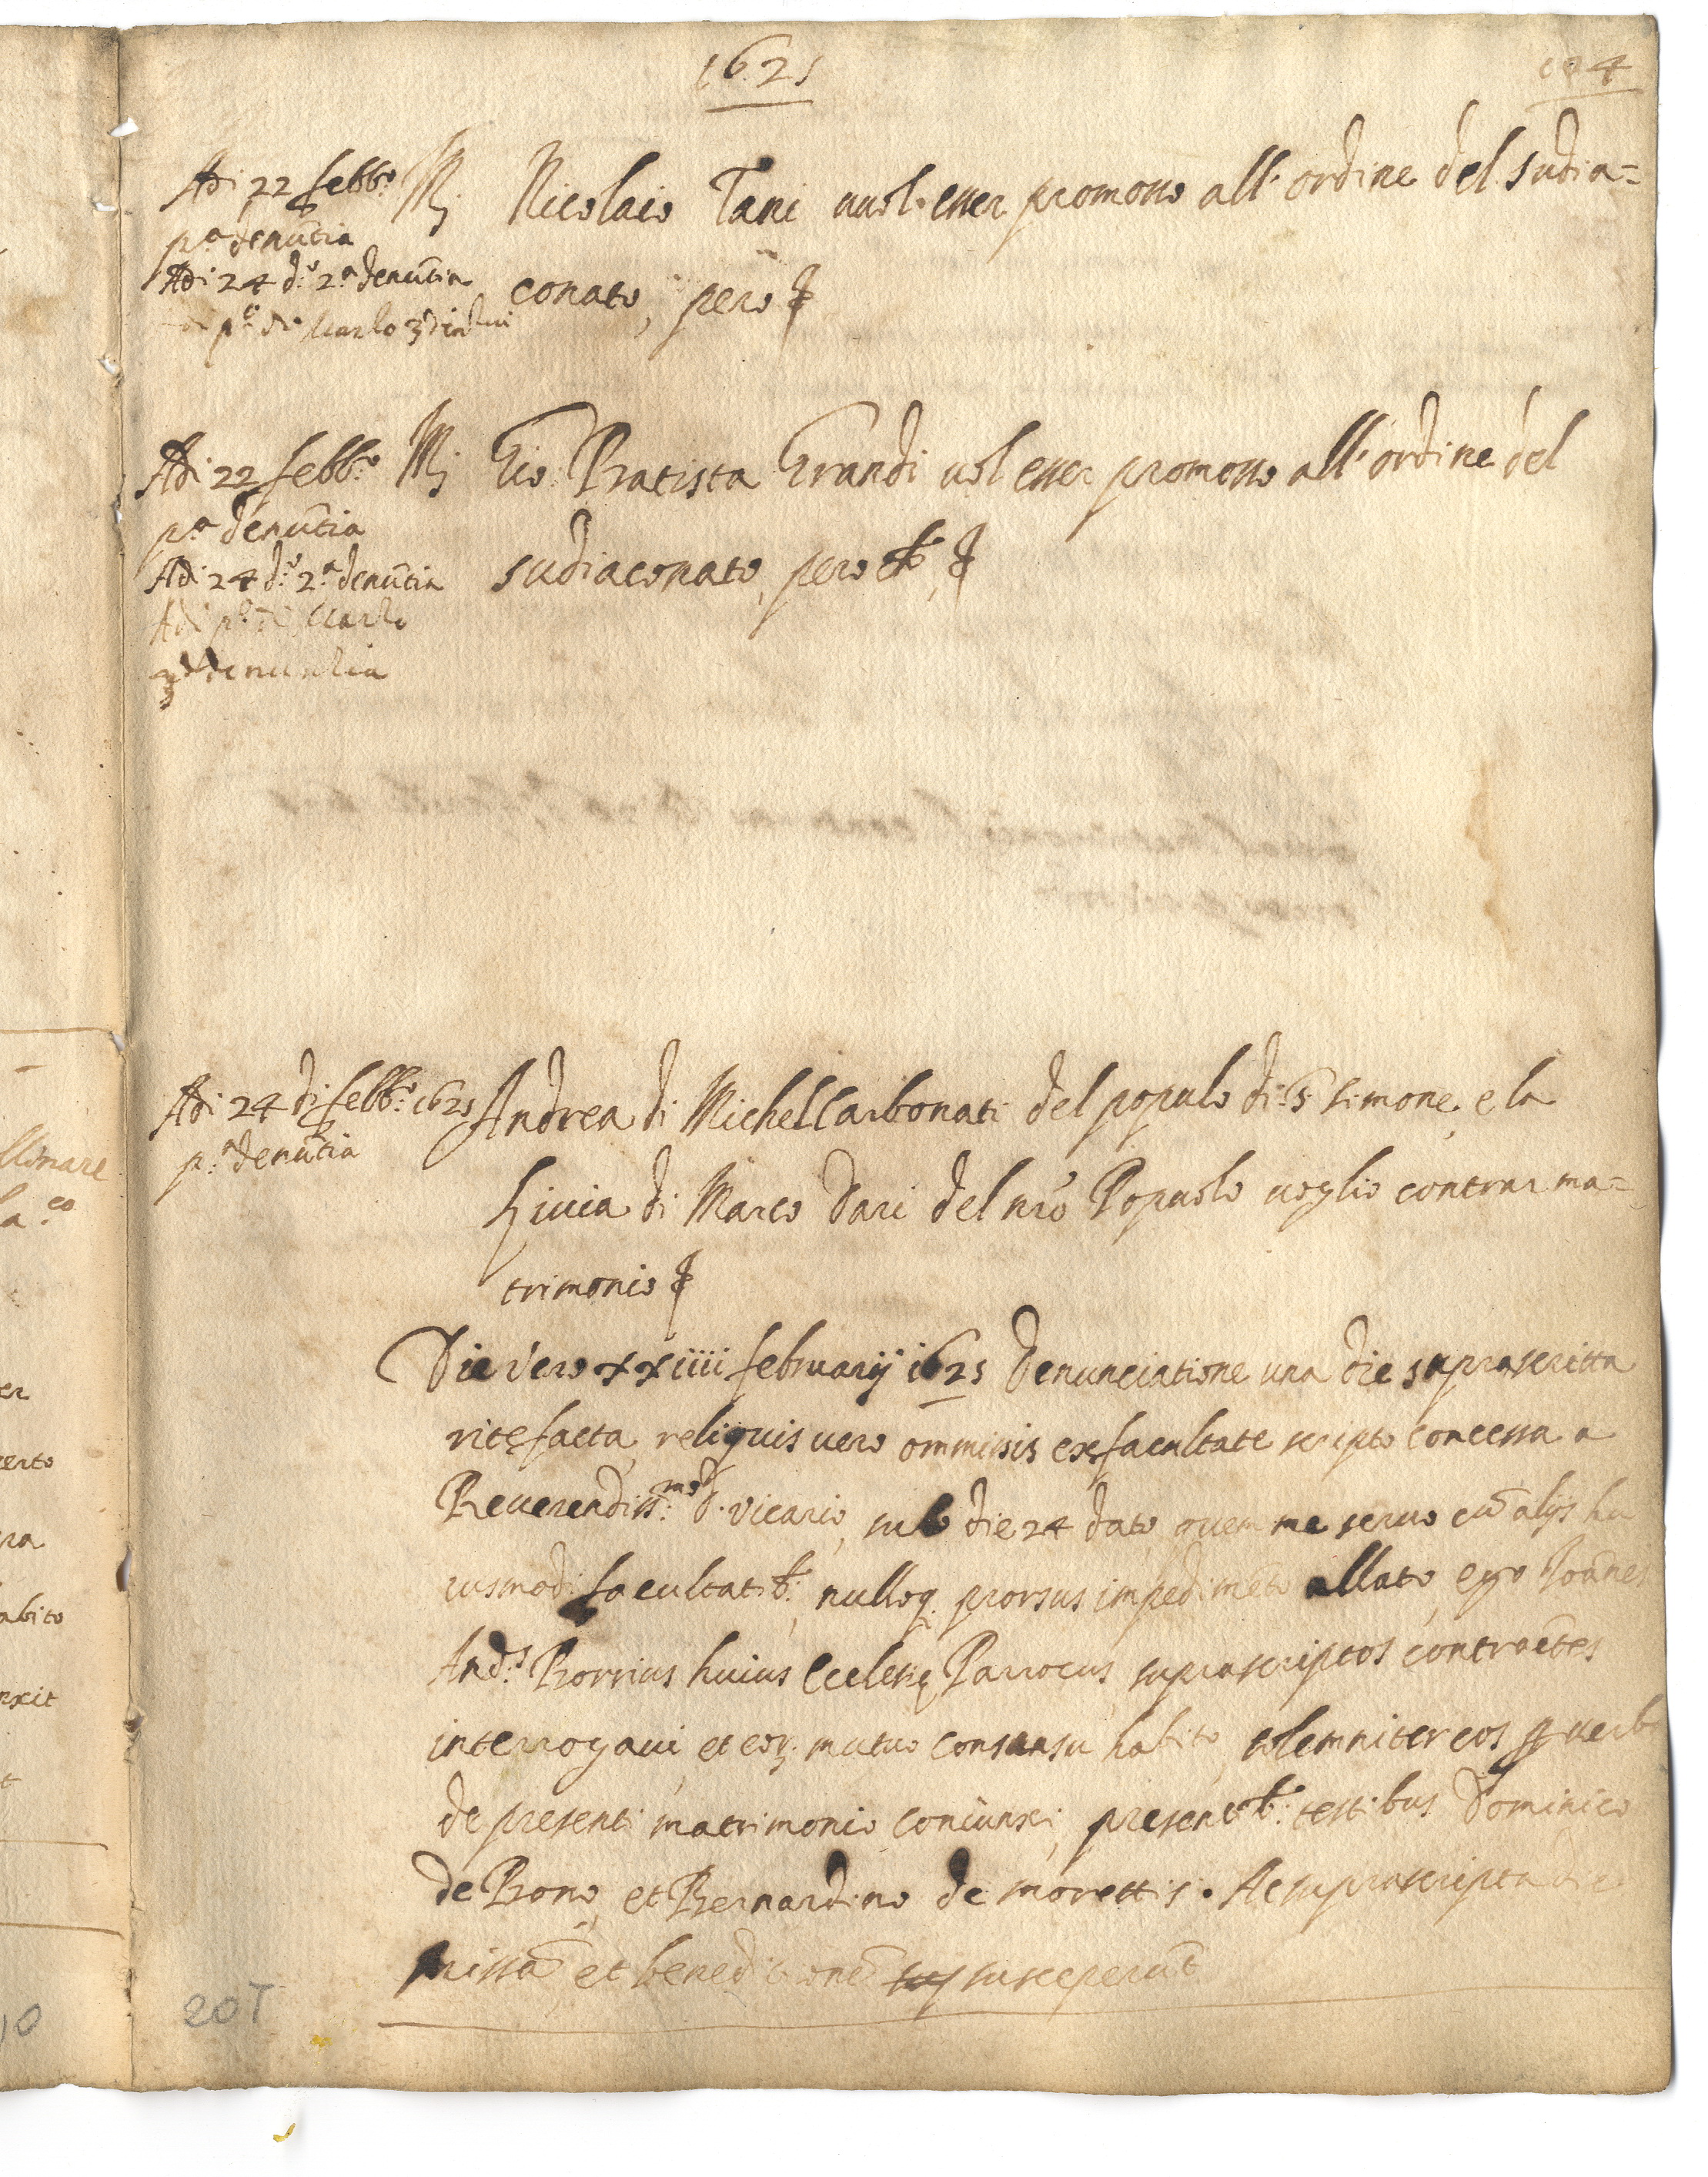 1625
104
Adi 22 febb:º
p:ª denũtia
Adi 24 d:º 2:ª denũtia
p:º di Marzo 3ª
M: Nicolaio Tani vuol esser promosso all' ordine del sudia=
conato, pero
Adi 22 febb:º
p:ª denũtia
Adi 24 d:º 2:ª denũtia
Adi p:º di Marzo
3ª denuntia
M: Gio: Batista Grandi uol esser promosso all' ordine del
sudiaconato, pero
Adi 24 di febb:º 1625
p:ª denũtia
Andrea di Michel Carbonati del popolo di S. Simone, e la
Liuia di Marco Dari del nr̃o Popuolo voglio contrar ma=
trimonio
Die vero xxiiii februarij 1625 Denunciatione una die suprascritta
rite facta, reliquis uero ommissis ex facultate scripto concessa a
Reuerendiss:mo D. Vicario, sub die 24 dato, quem me seruo cũ alijs hu
iusmodi facultatib:, nulloq. prorsus impedimẽto allato, ego Joãnes
And:s Borrius huius Ecclesię Parrocus suprascriptos contraẽtes
interrogaui, et eor. mutuo consensu habito, solemniter eos p verba
de presenti matrimonio coniunxi, presentib: testibus Dominico
de Bono, et Bernardino de morettis. Ac suprascripta die
missã, et beneditionẽ susceperũt
20T